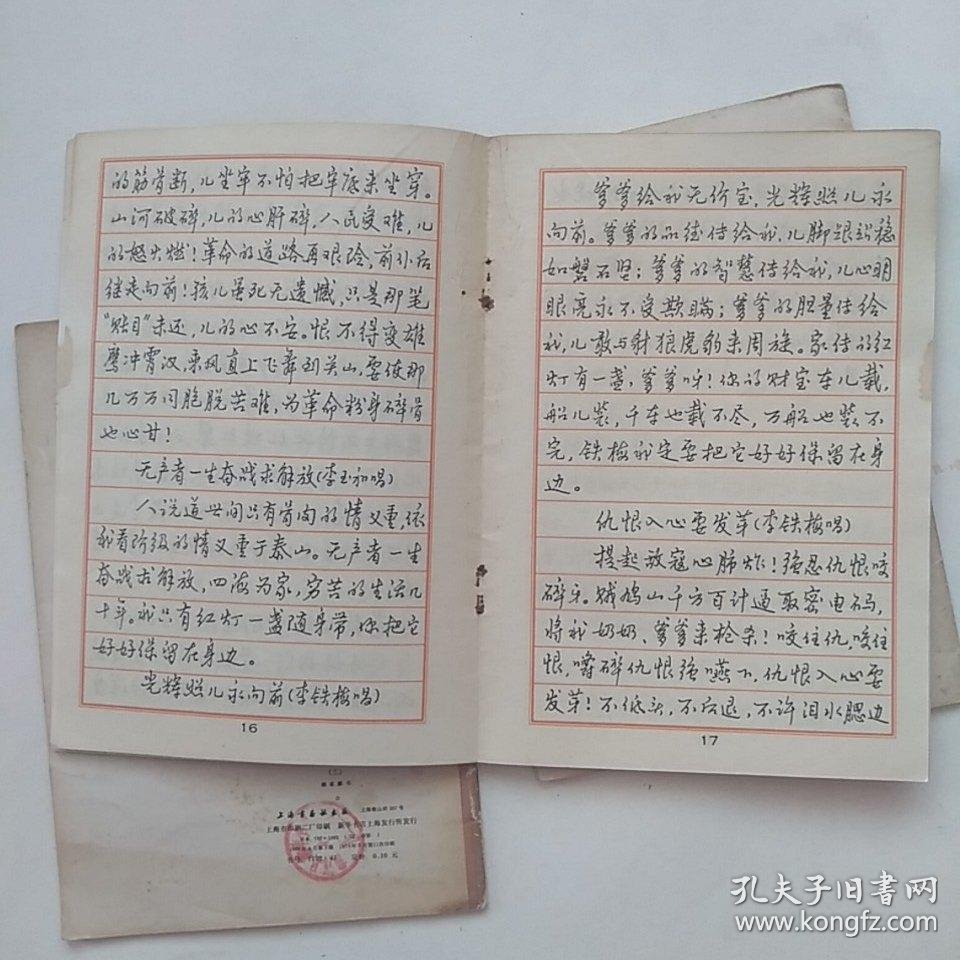 的筋骨断，儿坐牢不怕把牢底来坐穿。
山河破碎，儿的心肝碎，人民受难，儿
的怒火燃！革命的道路再艰险，前仆后
继走向前！孩儿虽死无遗憾，只是那笔
“账目”未还，儿的心不安。恨不得变雄
鹰冲霄汉，乘风直上飞舞到关山，要使那
几万万同胞脱苦难，为革命粉身碎骨
也心甘！
无产者一生奋战求解放(李玉和唱)
人说道世间只有骨肉的情义重，依
我看阶级的情义重于泰山。无产者一生
奋战求解放，四海为家，穷苦的生活几
十年。我只有红灯一盏随身带，你把它
好好保留在身边。
光辉照儿永向前(李铁梅唱)
16
爹爹给我无价宝，光辉照儿永
向前。爹爹的品德传给我，儿脚跟站稳
如磐石坚；爹爹的智慧传给我，儿心明
眼亮永不受欺瞒；爹爹的胆量传给
我，儿敢与豺狼虎豹来周旋。家传的红
灯有一盏，爹爹呀！你的财宝车儿载，
船儿装，千车也载不尽，万船也装不
完，铁梅我定要把它好好保留在身
边。
仇恨入心要发芽(李铁梅唱)
提起敌寇心肺炸！强忍仇恨咬
碎牙。贼鸠山千方百计逼取密电码，
将我奶奶、爹爹来枪杀！咬住仇，咬住
恨，嚼碎仇恨强咽下，仇恨入心要
发芽！不低头，不后退，不许泪水腮边
17
上海书画社出版
上海市印刷二厂印刷 新华书店上海发行所发行
定价 0.10 元
孔夫子旧书网
www.kongfz.com